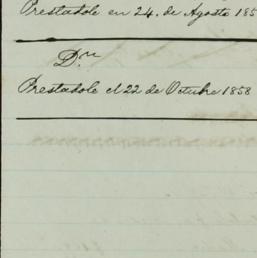 Prestadole en 24. de Agosto 185
Dn
Prestadole el 22 de Octubre 1858